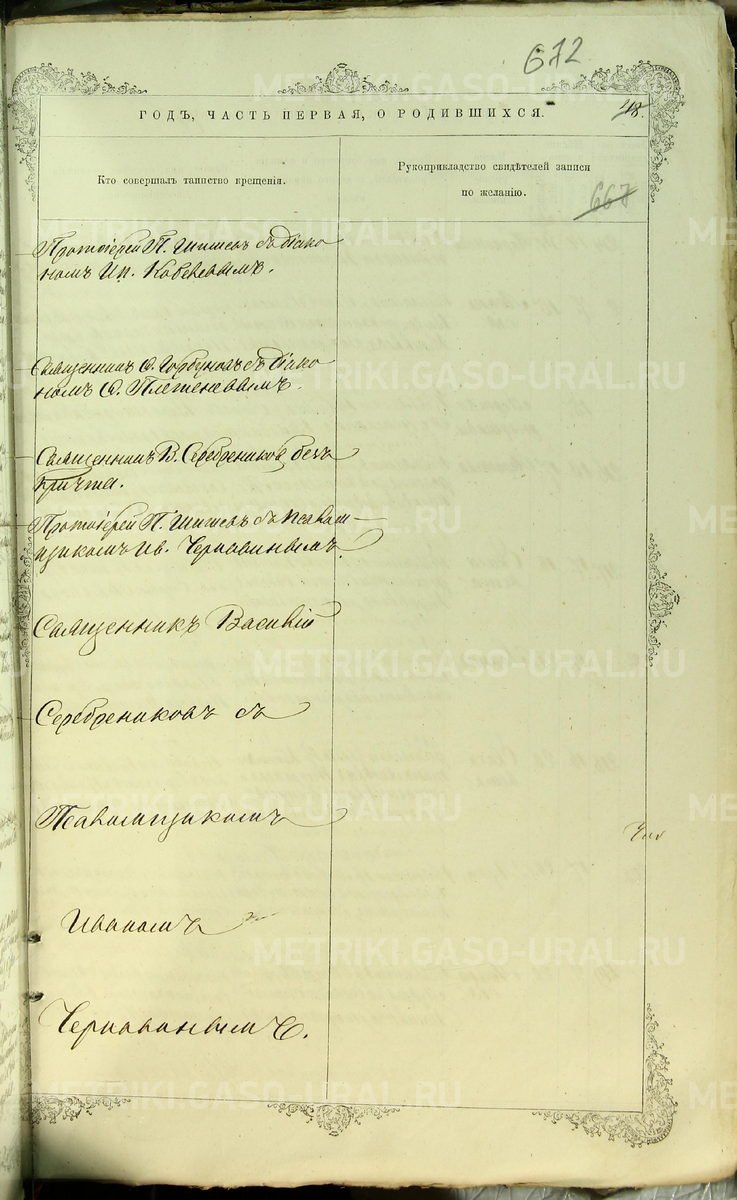 672
ГОДЪ, ЧАСТЬ ПЕРВАЯ, О РОДИВШИХСЯ.
48.
Кто совершалъ таинство крещенія.
Рукоприкладство свидѣтелей записи
по желанію.
667
Протоіерей П. Шишевъ съ діако
номъ Ип.
Священникъ Ѳ. Горбуновъ съ Діако
номъ Ѳ. Плетеневымъ.
Священникъ В. Серебрениковъ безъ
причта.
Протоіерей П. Шишевъ съ псалом
щикомъ Ив. Чернавинымъ.
Священникъ Василій
Серебрениковъ съ
Псаломщикомъ
Иваномъ
Чернавинымъ.
METRIKI.GASO-URAL.RU